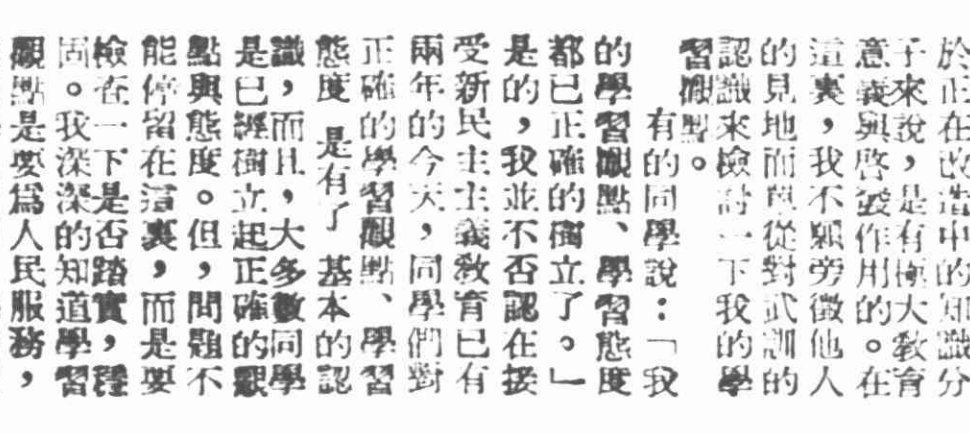 於正在改造中的知識分
子來說，是有極大教育
意義與啓發作用的。在
這裏，我不願旁徵他人
的見地而單從對武訓的
認識來檢討一下我的學
習觀點。
有的同學說：「我
的學習觀點、學習態度
都已正確的樹立了。」
是的，我並不否認在接
受新民主主義敎育已有
兩年的今天，同學們對
正確的學習觀點、學習
態度 是有了 基本的認
識，而且，大多數同學
是已經樹立起正確的觀
點與態度。但，問題不
能停留在這裏，而是要
檢查一下是否踏實，穩
固。我深深的知道學習
觀點是要爲人民服務，